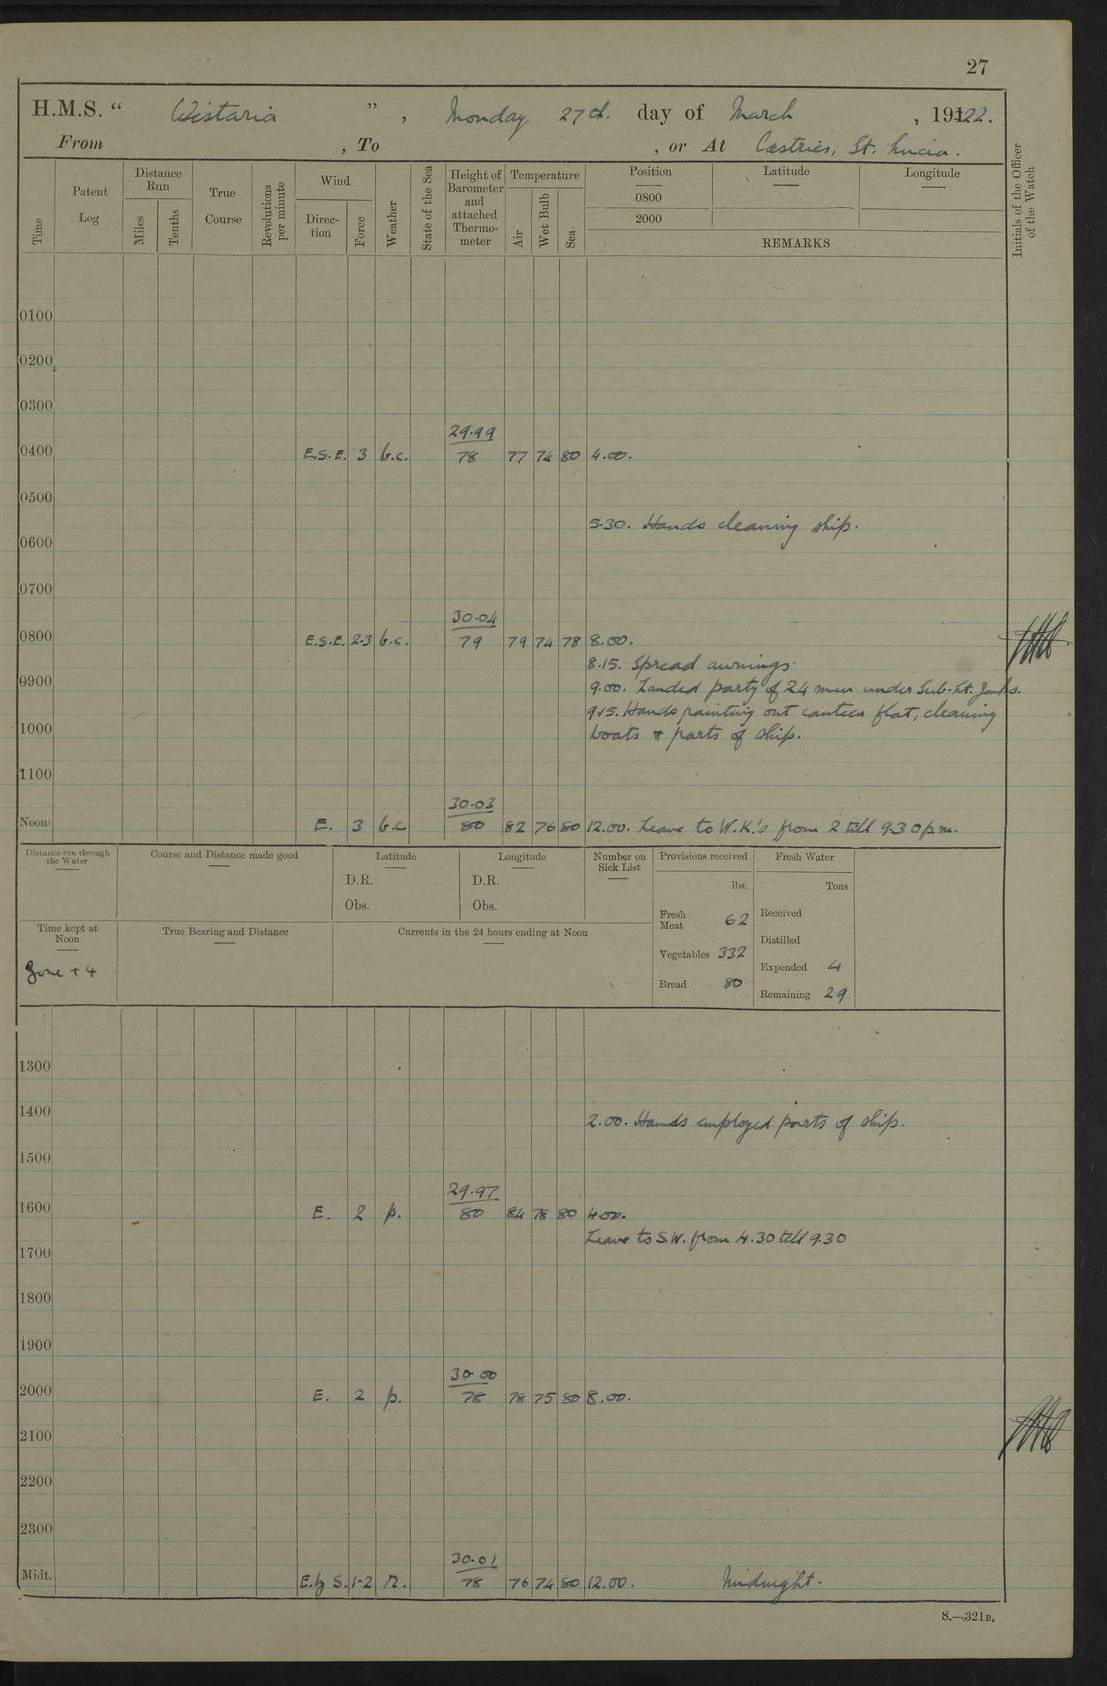 27
H.M.S. “ Wistaria ” , Monday 27th. day of March , 19122.
From , To , or At Castries, St. Lucia.
Time
Patent Log
Distance Run
Miles
Tenths
True Course
Revolutions per minute
Wind
Direc-tion
Force
Weather
State of the Sea
Height of Barometer and attached Thermo-meter
Temperature
Air
Wet Bulb
Sea
Position
Latitude
Longitude
0800
2000
REMARKS
Initials of the Officer of the Watch
0100
0200
0300
29.99
0400 E.S.E. 3 b.c. 78 77 74 80 4.00.
0500
5.30. Hands cleaning ship.
0600
0700
30.04
0800 E.S.E. 2-3 b.c. 79 79 74 78 8.00.
8.15. Spread awnings.
0900 9.00. Landed party of 24 men under Sub-Lt.
9.15. Hands painting out canteen flat, cleaning
1000 boats & parts of ship.
1100
30.03
Noon E. 3 b.c 80 82 76 80 12.00. Leave to W.K.'s from 2 till 9.30 p.m.
Distance run through the Water
Course and Distance made good
Latitude
D.R.
Obs.
Longitude
D.R.
Obs.
Number on Sick List
Provisions received
lbs.
Fresh Meat 62
Vegetables 332
Bread 80
Fresh Water
Tons
Received
Distilled
Expended 4
Remaining 29
Time kept at Noon
Zone + 4
True Bearing and Distance
Currents in the 24 hours ending at Noon
1300
1400 2.00. Hands employed parts of ship.
1500
29.97
1600 E. 2 p. 80 84 78 80 4.00.
Leave to S.W. from 4.30 till 9.30
1700
1800
1900
30.00
2000 E. 2 p. 78 78 75 80 8.00.
2100
2200
2300
30.01
Midt. E. by S. 1-2 r. 78 76 74 80 12.00. Midnight.
S.—321B.